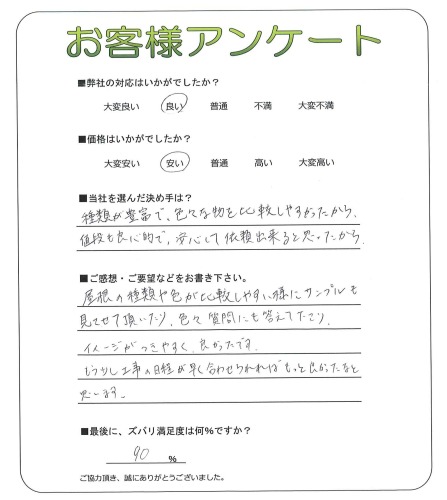 お客様アンケート
■弊社の対応はいかがでしたか？
大変良い 良い 普通 不満 大変不満
■価格はいかがでしたか？
大変安い 安い 普通 高い 大変高い
■当社を選んだ決め手は？
種類が豊富で、色々な物を比較しやすかったから、
値段も良心的で、安心して依頼出来ると思ったから。
■ご感想・ご要望などをお書き下さい。
屋根の種類や色が比較しやすい様にサンプルも
見させて頂いたり、色々質問にも答えて下さり
イメージがつきやすく、良かったです。
もう少し工事の日程が早く合わせられればもっと良かったなと
思います。
■最後に、ズバリ満足度は何%ですか？
90 %
ご協力頂き、誠にありがとうございました。